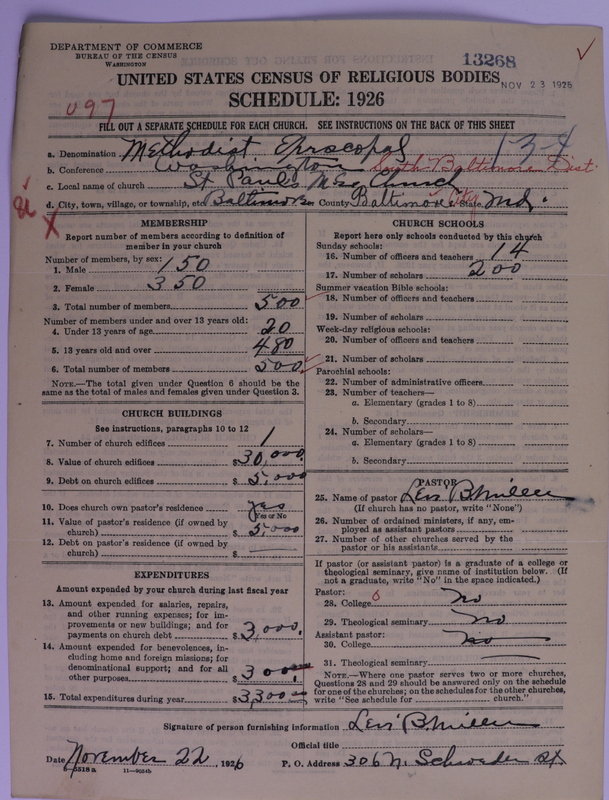 DEPARTMENT OF COMMERCE
BUREAU OF THE CENSUS
WASHINGTON
13268
NOV 23 1926
UNITED STATES CENSUS OF RELIGIOUS BODIES
SCHEDULE: 1926
097
FILL OUT A SEPARATE SCHEDULE FOR EACH CHURCH. SEE INSTRUCTIONS ON THE BACK OF THIS SHEET
a. Denomination Methodist Episcopal 13-4
b. Conference Washington South Baltimore Dist.
c. Local name of church St Paul's M.E. Church
d. City, town, village, or township, etc Baltimore County Baltimore City State Md.
MEMBERSHIP
Report number of members according to definition of
member in your church
Number of members, by sex:
1. Male 150
2. Female 350
3. Total number of members 500
Number of members under and over 13 years old:
4. Under 13 years of age 20
5. 13 years old and over 480
6. Total number of members 500
NOTE.—The total given under Question 6 should be
same as the total of males and females given under Question 3.
CHURCH BUILDINGS
See instructions, paragraphs 10 to 12
7. Number of church edifices 1
8. Value of church edifices $30,000.
9. Debt on church edifices $5,000
10. Does church own pastor's residence yes
Yes or No
11. Value of pastor's residence (if owned by
church) $5,000
12. Debt on pastor's residence (if owned by
church) $
EXPENDITURES
Amount expended by your church during last fiscal year
13. Amount expended for salaries, repairs,
and other running expenses; for im-
provements or new buildings; and for
payments on church debt $3,000.
14. Amount expended for benevolences, in-
cluding home and foreign missions; for
denominational support; and for all
other purposes $300
15. Total expenditures during year $3300
CHURCH SCHOOLS
Report here only schools conducted by this church
Sunday schools:
16. Number of officers and teachers 14
17. Number of scholars 200
Summer vacation Bible schools:
18. Number of officers and teachers
19. Number of scholars
Week-day religious schools:
20. Number of officers and teachers
21. Number of scholars
Parochial schools:
22. Number of administrative officers
23. Number of teachers—
a. Elementary (grades 1 to 8)
b. Secondary
24. Number of scholars—
a. Elementary (grades 1 to 8)
b. Secondary
PASTOR
25. Name of pastor Levi B. Miller
(If church has no pastor, write "None")
26. Number of ordained ministers, if any, em-
ployed as assistant pastors
27. Number of other churches served by the
pastor or his assistants
If pastor (or assistant pastor) is a graduate of a college or
theological seminary, give name of institution below. (If
not a graduate, write "No" in the space indicated.)
Pastor:
28. College 0 No
29. Theological seminary No
Assistant pastor:
30. College No
31. Theological seminary
NOTE.—Where one pastor serves two or more churches,
Questions 28 and 29 should be answered only on the schedule
for one of the churches; on the schedules for the other churches,
write "See schedule for church."
Signature of person furnishing information Levi B. Miller
Official title
Date November 22, 1926 P. O. Address 306 N. Schroeder St
8518a 11—9054b